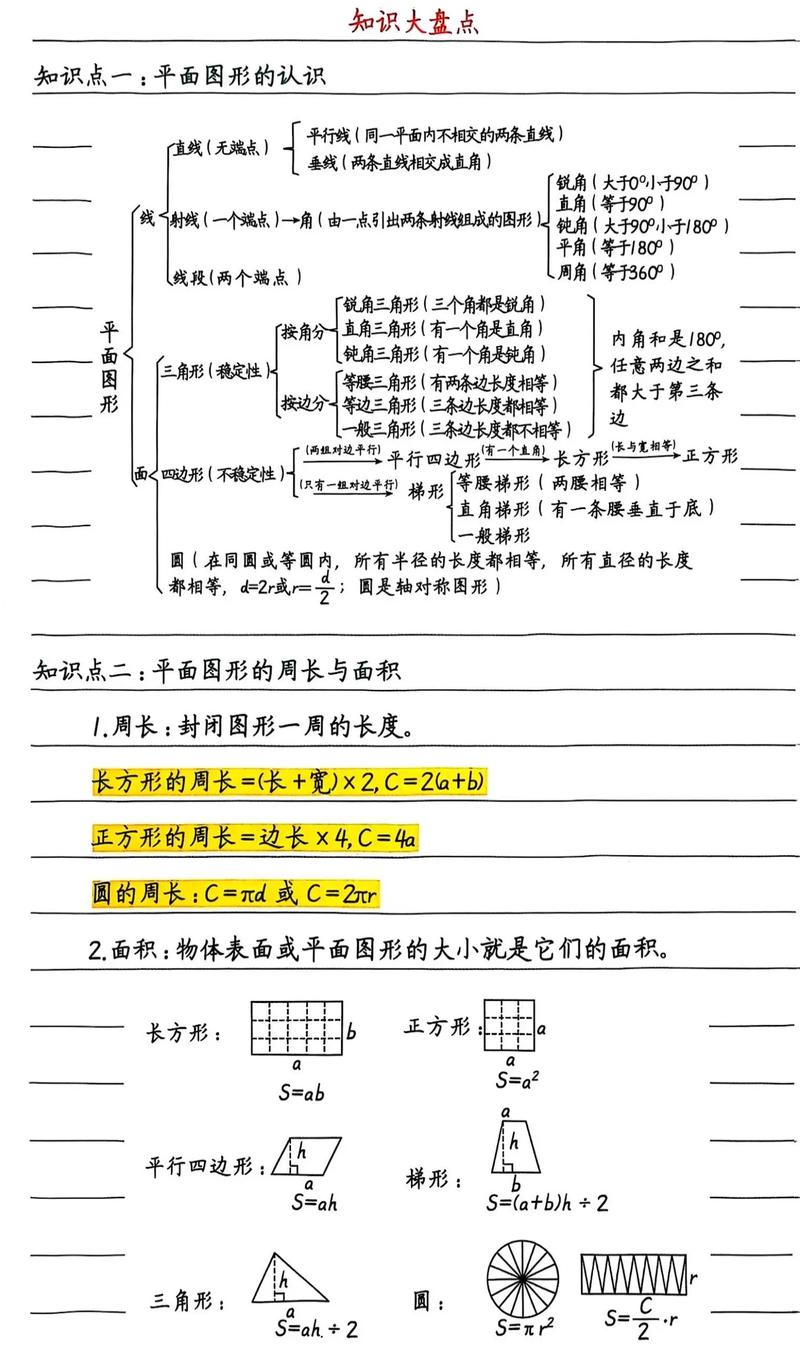 知识大盘点
知识点一:平面图形的认识
平面图形
线
直线(无端点)
平行线(同一平面内不相交的两条直线)
垂线(两条直线相交成直角)
射线(一个端点)→角(由一点引出两条射线组成的图形)
锐角(大于0°小于90°)
直角(等于90°)
钝角(大于90°小于180°)
平角(等于180°)
周角(等于360°)
线段(两个端点)
面
三角形(稳定性)
按角分
锐角三角形(三个角都是锐角)
直角三角形(有一个角是直角)
钝角三角形(有一个角是钝角)
按边分
等腰三角形(有两条边长度相等)
等边三角形(三条边长度都相等)
一般三角形(三条边长度都不相等)
内角和是180°,
任意两边之和
都大于第三条
边
四边形(不稳定性)
(两组对边平行)
平行四边形
(有一个直角)
长方形
(长与宽相等)
正方形
(只有一组对边平行)
梯形
等腰梯形(两腰相等)
直角梯形(有一条腰垂直于底)
一般梯形
圆(在同圆或等圆内,所有半径的长度都相等,所有直径的长度
都相等,d=2r或r=d/2;圆是轴对称图形)
知识点二:平面图形的周长与面积
1.周长:封闭图形一周的长度。
长方形的周长=(长+宽)×2,C=2(a+b)
正方形的周长=边长×4,C=4a
圆的周长:C=πd 或 C=2πr
2.面积:物体表面或平面图形的大小就是它们的面积。
长方形:
b
a
S=ab
正方形:
a
a
S=a²
平行四边形:
h
a
S=ah
梯形:
a
h
b
S=(a+b)h÷2
三角形:
h
a
S=ah.÷2
圆:
S=πr²
r
S=C/2·r